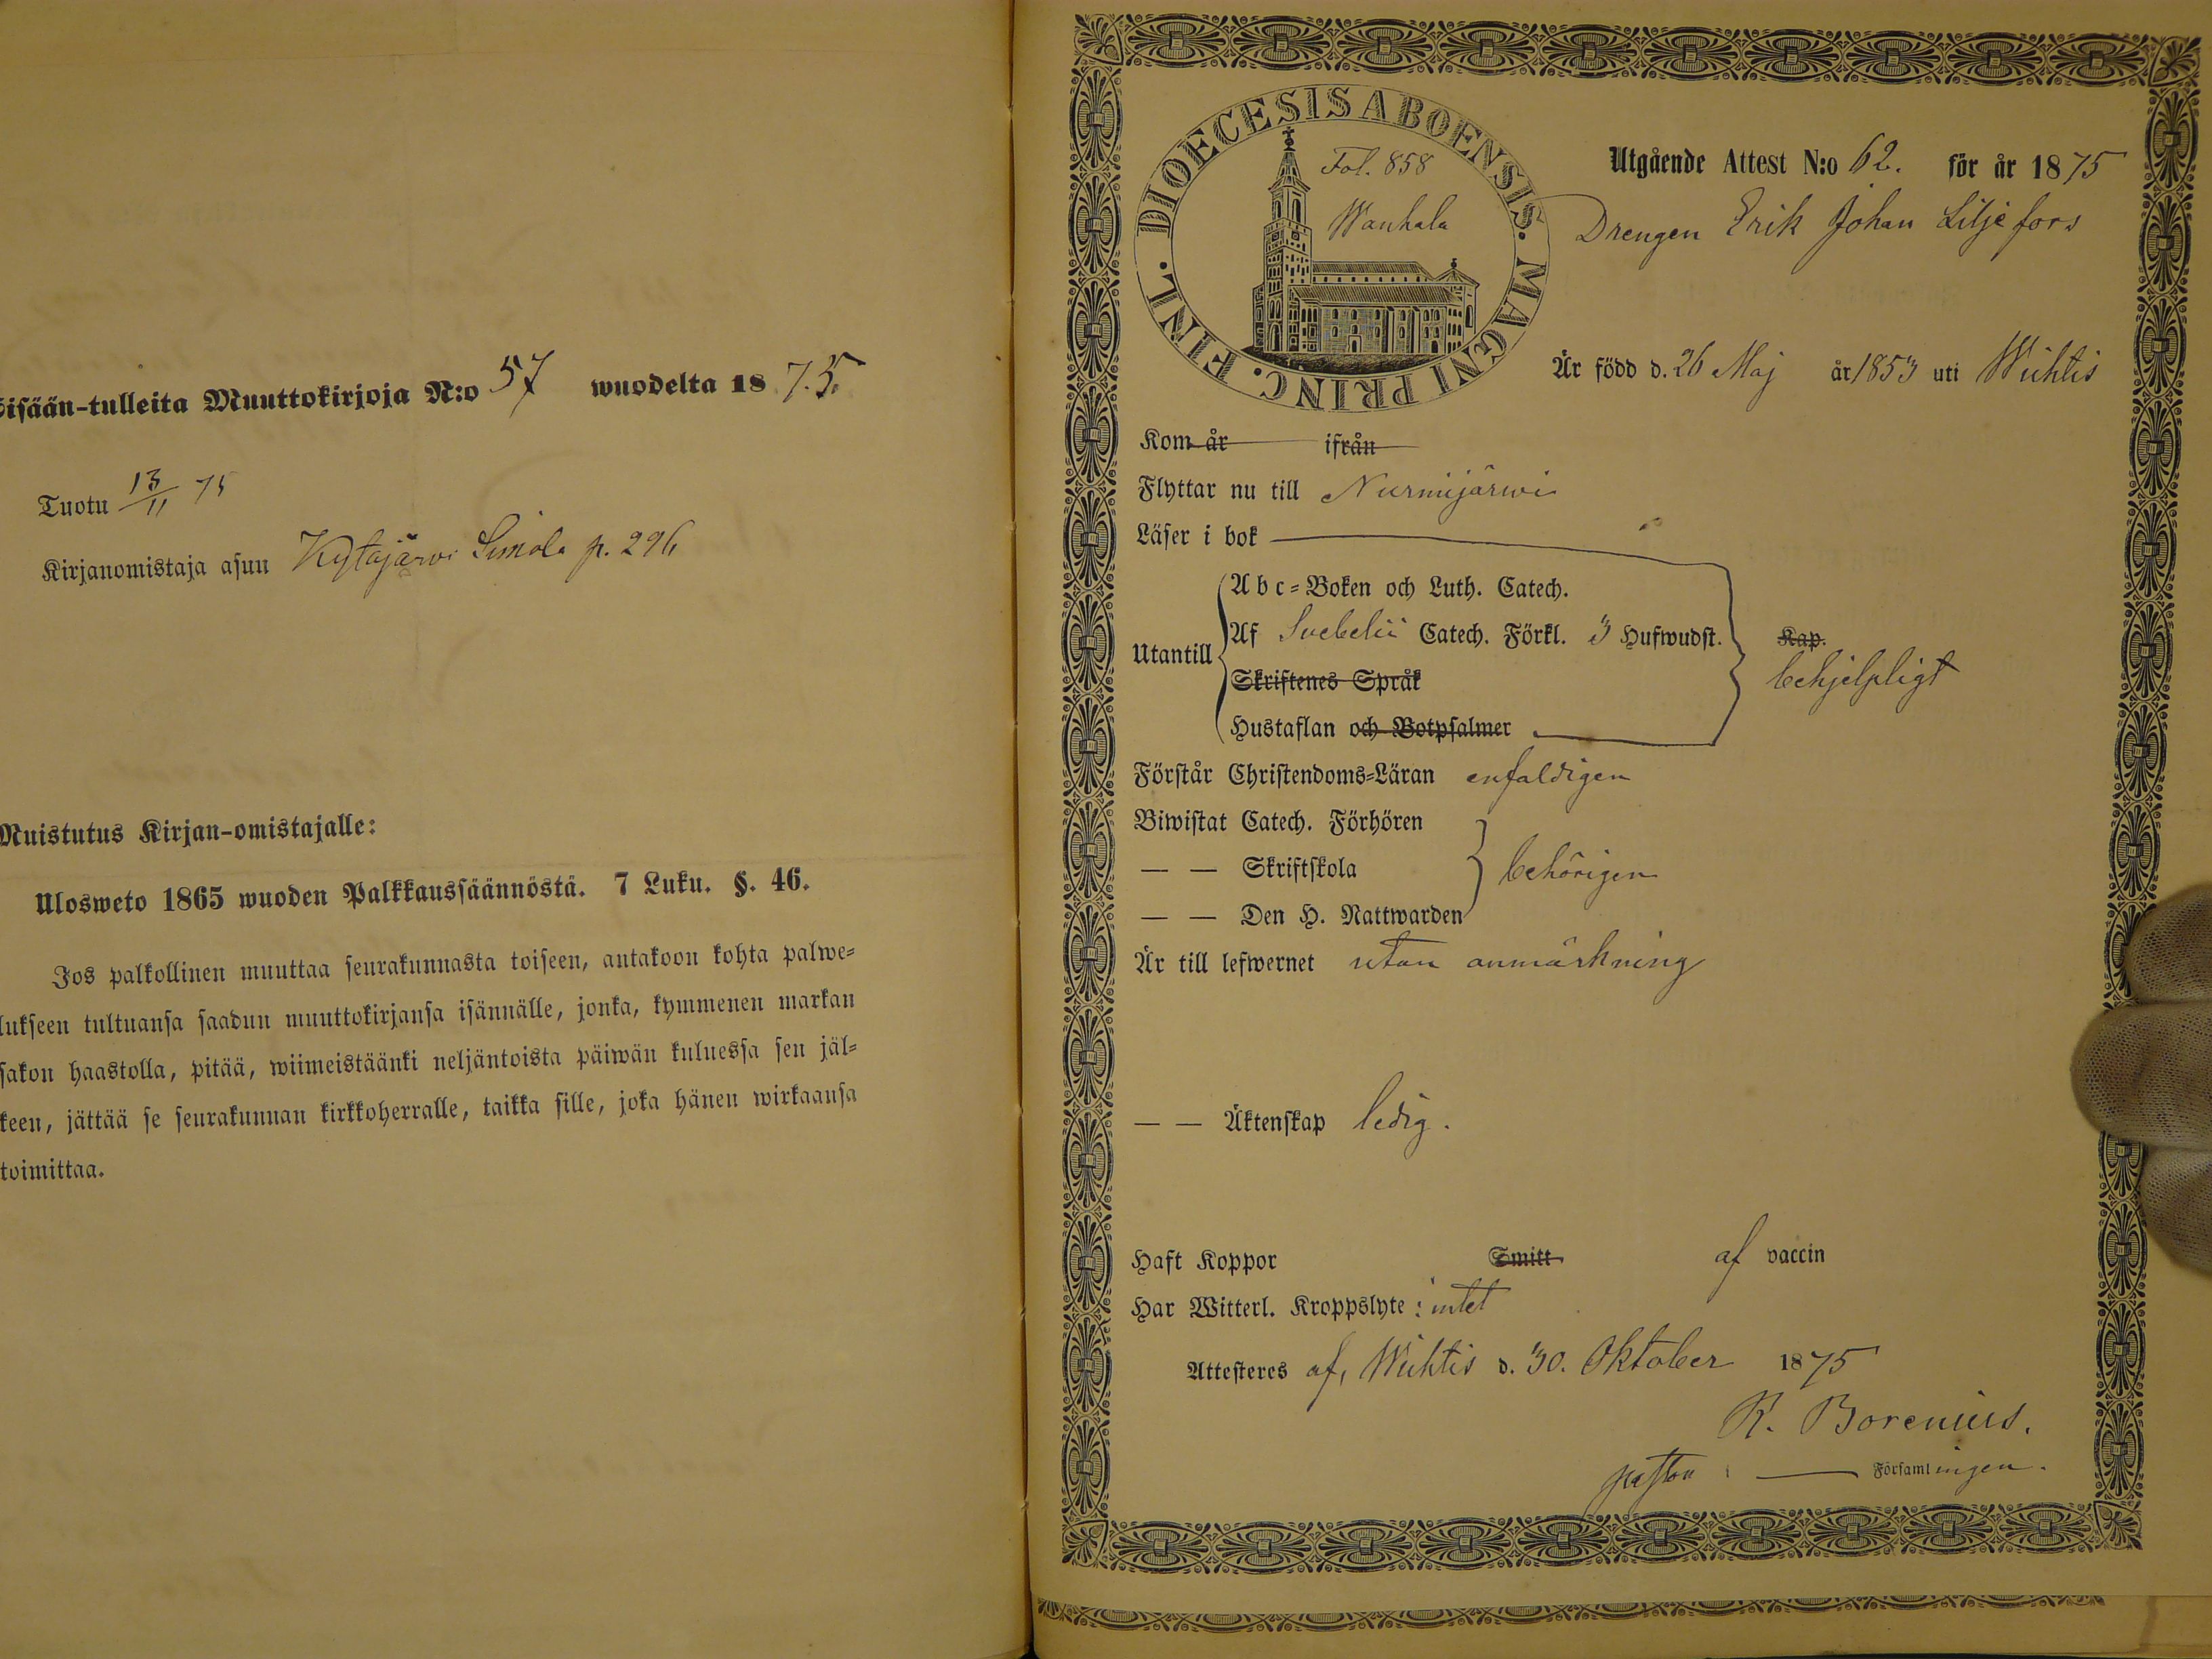 Sisään-tulleita Muuttokirjoja N:o 57 wuodelta 1875.
Tuotu 13/11 75
Kirjanomistaja asuu Kytäjärvi Simola p. 296
Muistutus Kirjan-omistajalle:
Ulosweto 1865 wuoden Palkkaussäännöstä. 7 Luku. §. 46.
Jos palkollinen muuttaa seurakunnasta toiseen, antakoon kohta palwe-
lukseen tultuansa saadun muuttokirjansa isännälle, jonka, kymmenen markan
sakon haastolla, pitää, wiimeistäänki neljäntoista päiwän kuluessa sen jäl-
keen, jättää se seurakunnan kirkkoherralle, taikka sille, joka hänen wirkaansa
toimittaa.
DIOECESIS ABOENSIS. MAGNI PRINC. FINL.
Fol. 858
Wanhala
Utgående Attest N:o 62. för år 1875
Drengen Erik Johan Liljefors
Är född d. 26 Maj år 1853 uti Wichtis
Kom år ifrån
Flyttar nu till Nurmijärwi
Läser i bok
Utantill
Abc-Boken och Luth. Catech.
Af Svebelii Catech. Förkl. 3 Hufwudst. Kap.
Skriftenes Språk
behjelpligt
Hustaflan och Botpsalmer
Förstår Christendoms-Läran enfaldigen
Biwistat Catech. Förhören
— — Skriftskola
behörigen
— — Den H. Nattwarden
Är till lefwernet utan anmärkning
— — Äktenskap ledig.
Haft Koppor Smitt af vaccin
Har Witterl. Kroppslyte : intet
Attesteres af, Wichtis d. 30. Oktober 1875
K. Borenius.
pastor i — Församlingen.